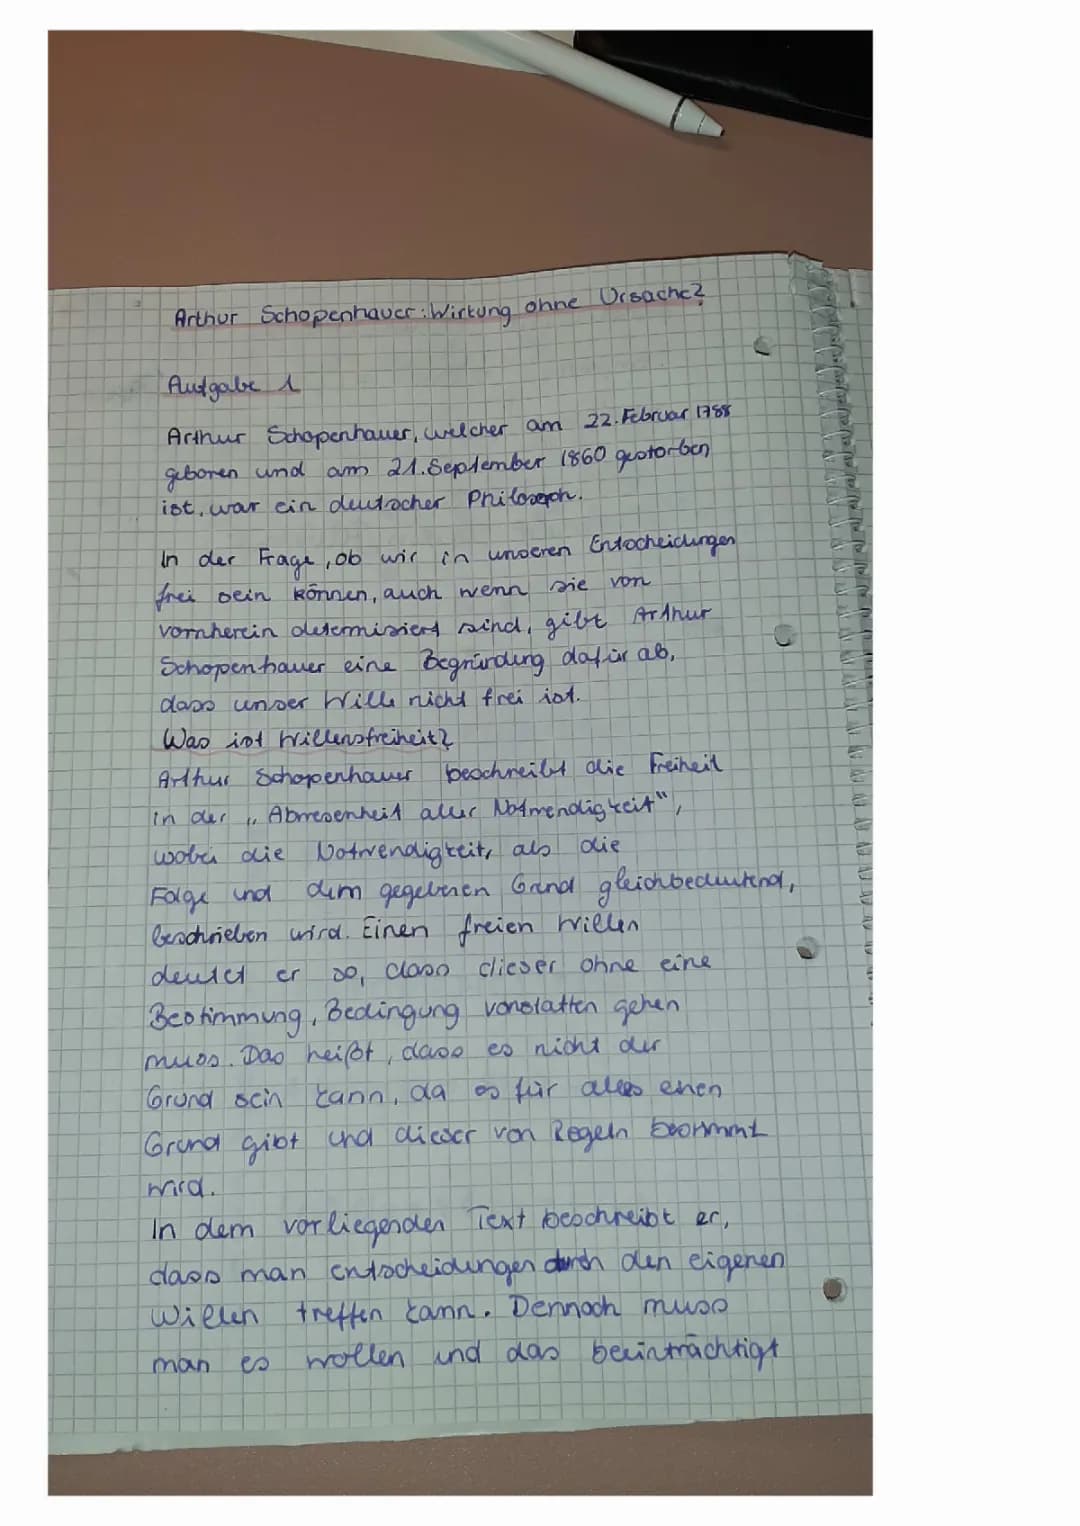 Arthur Schopenhauer: Wirkung ohne Ursache?
Aufgabe 1
Arthur Schopenhauer, welcher am 22. Februar 1788
geboren und am 21. September 1860 gestorben
ist, war ein deutscher Philosoph.
In der Frage, ob wir in unseren Entscheidungen
frei sein können, auch wenn sie von
vornherein determiniert sind, gibt Arthur
Schopenhauer eine Begründung dafür ab,
dass unser Wille nicht frei ist.
Was ist Willensfreiheit?
Arthur Schopenhauer beschreibt die Freiheit
in der „Abwesenheit aller Notwendigkeit",
wobei die Notwendigkeit, als die
Folge und dem gegebenen Grund gleichbedeutend,
beschrieben wird. Einen freien Willen
deutet er so, dass dieser ohne eine
Bestimmung, Bedingung vonstatten gehen
muss. Das heißt, dass es nicht der
Grund sein kann, da es für alles einen
Grund gibt und dieser von Regeln bestimmt
wird.
In dem vorliegenden Text beschreibt er,
dass man Entscheidungen durch den eigenen
Willen treffen kann. Dennoch muss
man es wollen und das beeinträchtigt